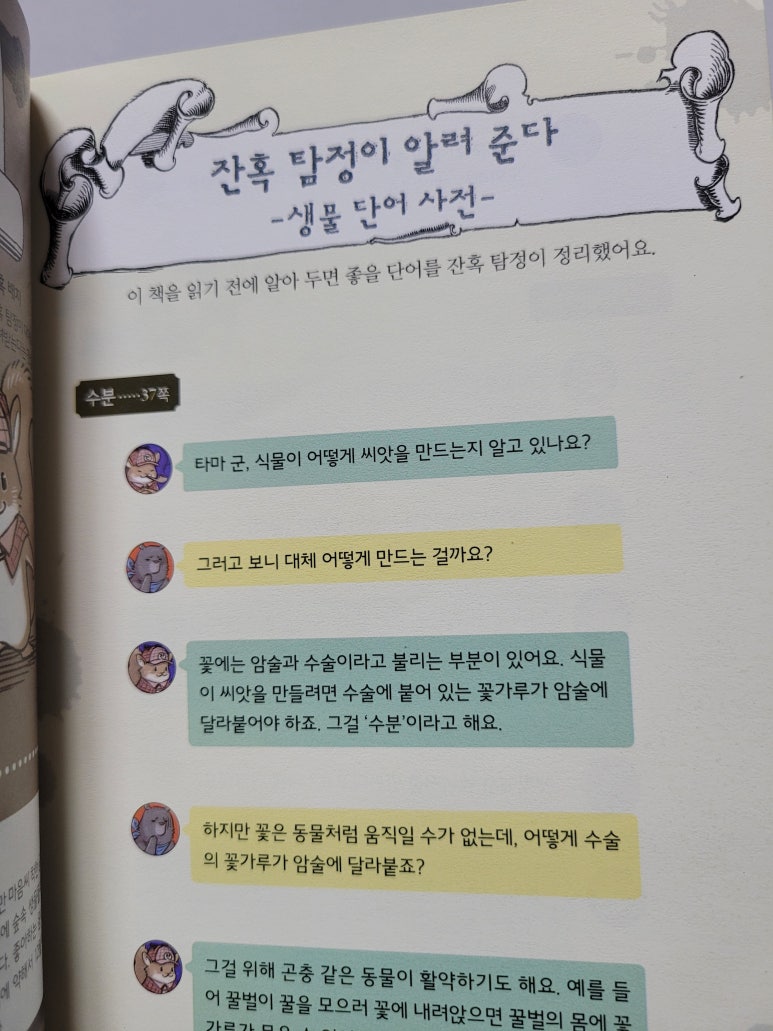 잔혹 탐정이 알려 준다
-생물 단어 사전-
이 책을 읽기 전에 알아 두면 좋을 단어를 잔혹 탐정이 정리했어요.
수분·····37쪽
타마 군, 식물이 어떻게 씨앗을 만드는지 알고 있나요?
그러고 보니 대체 어떻게 만드는 걸까요?
꽃에는 암술과 수술이라고 불리는 부분이 있어요. 식물
이 씨앗을 만들려면 수술에 붙어 있는 꽃가루가 암술에
달라붙어야 하죠. 그걸 ‘수분’이라고 해요.
하지만 꽃은 동물처럼 움직일 수가 없는데, 어떻게 수술
의 꽃가루가 암술에 달라붙죠?
그걸 위해 곤충 같은 동물이 활약하기도 해요. 예를 들
어 꿀벌이 꿀을 모으러 꽃에 내려앉으면 꿀벌의 몸에 꽃